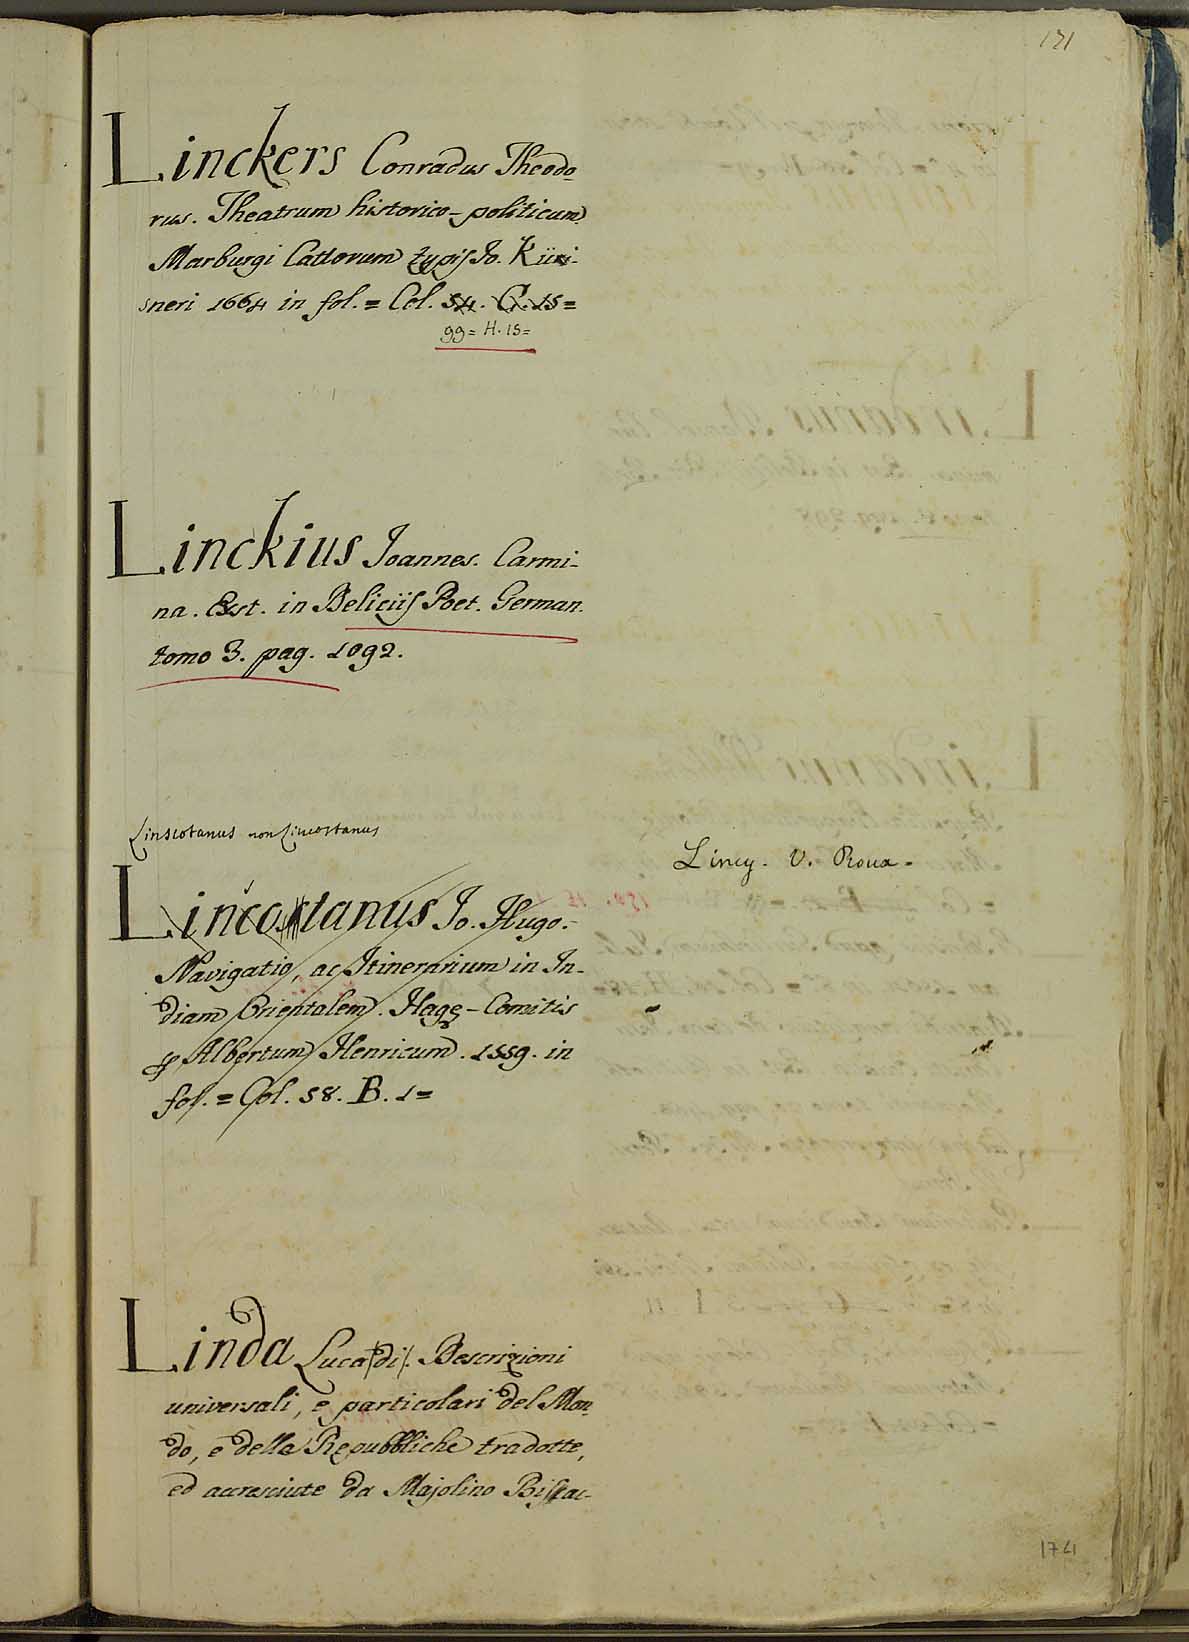 171
Linckers Conradus Theodo-
rus. Theatrum historico-politicum
Marburgi Cattorum typis Jo. Küri-
sneri 1664 in fol. = Col. 54. C. 15 =
99 = H. 15 =
Linckius Joannes. Carmi-
na. Exst. in Deliciis Poet. German.
tomo 3. pag. 1092.
Linscotanus non Lincostanus
Lincy. V. Roux.
Lincostanus Jo. Hugo.
Navigatio, ac Itinerarium in In-
diam Orientalem. Hagę-Comitis
Albertum Henricum. 1559. in
fol. = Col. 58. B. 1 =
Linda Luca (di). Descrizioni
universali, e particolari del Mon-
do, e delle Repubbliche tradotte,
ed accresciute da Majolino Bissac-
1741